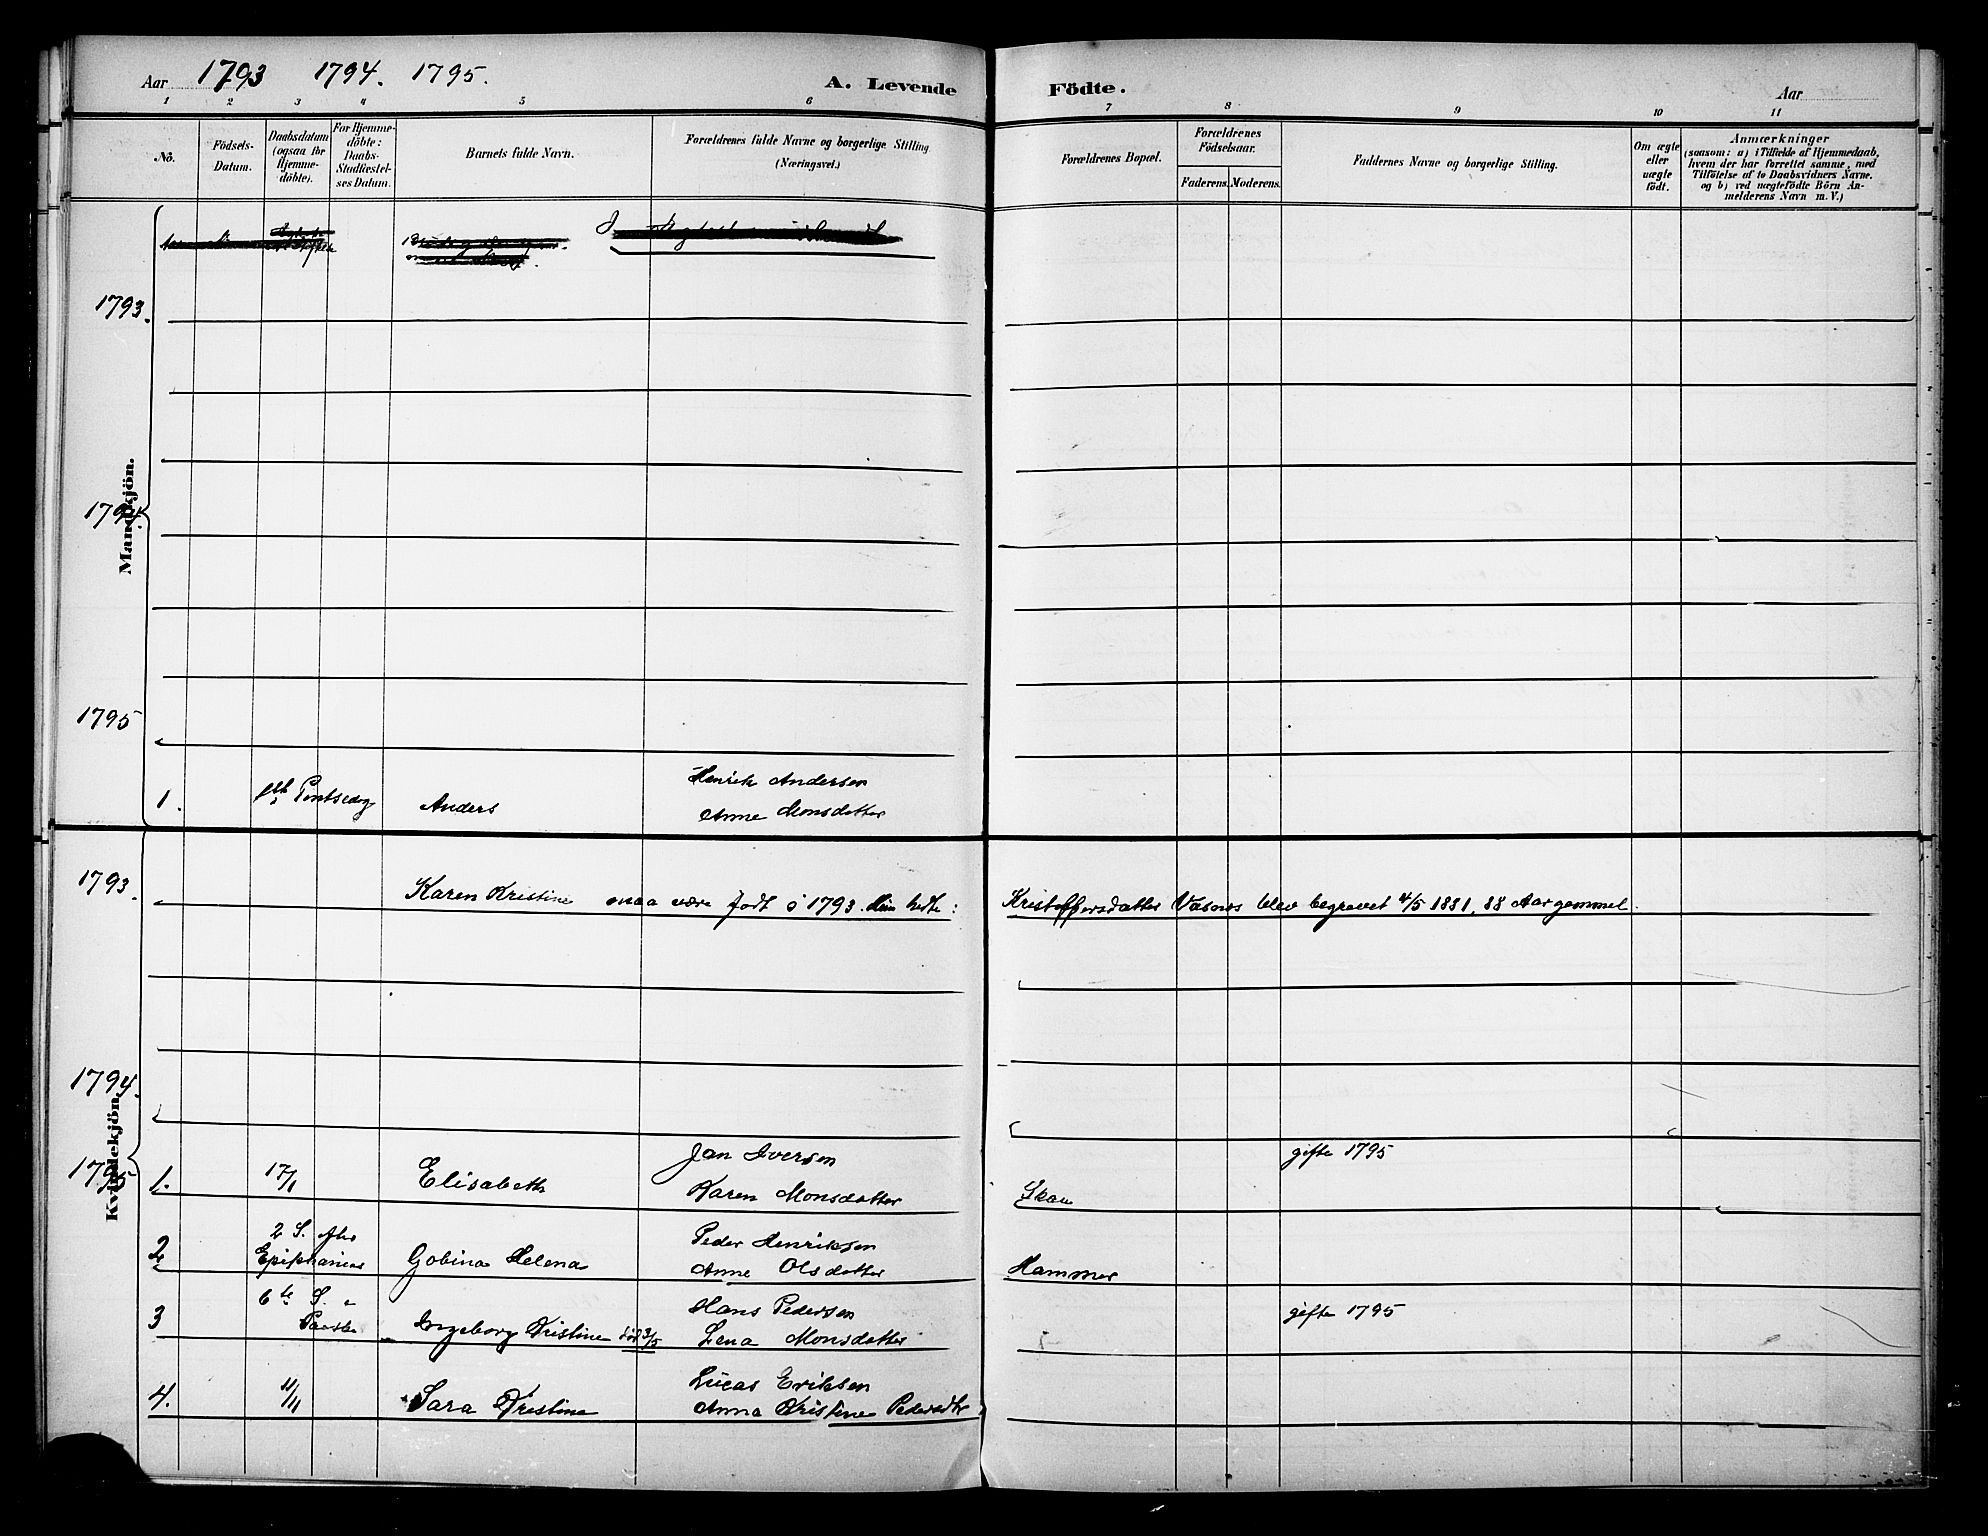 Aar 1793 1794. 1795.
A. Levende Födte.
Aar
1 2 3 4 5 6 7 8 9 10 11
No.
Födsels-
Datum.
Daabsdatum
(ogsaa for
Hjemme-
döbte).
For Hjemme-
döbte:
Daabs-
Stadfæstel-
ses Datum.
Barnets fulde Navn.
Forældrenes fulde Navne og borgerlige Stilling
(Næringsvei.)
Forældrenes Bopæl.
Forældrenes
Födselsaar.
Faderens. Moderens.
Faddernes Navne og borgerlige Stilling.
Om ægte
eller
uægte
födt.
Anmærkninger
(saasom: a) i Tilfælde af Hjemmedaab,
hvem der har forrettet samme, med
Tilföielse af to Daabsvidners Navne.
og b) ved uægtefödte Börn An-
melderens Navn m. V.)
1793.
Mandkjön.
1794.
1795
Henrik Andersen
1. Anders
Anne Monsdatter
1793.
Karen Kristine maa være født i 1793. Hun hedte: Kristoffersdatter Vasnes blev begravet 4/5 1881, 88 Aar gammel.
1794.
Kvindekjön.
1795
Jan Iversen gifte 1795
1. 17/1 Elisabeth
Karen Monsdatter Skau
2 S. efter Peder Henriksen
2 Epiphanias Gobina Helena
Anne Olsdatter Hammer
6te S. " Hans Pedersen gifte 1795
3 Paaske Ingeborg Kristine død 3/5
Lena Monsdatter
Lucas Eriksen
4. 11/11 Sara Kristine
Anna Kristine Pedersdtr